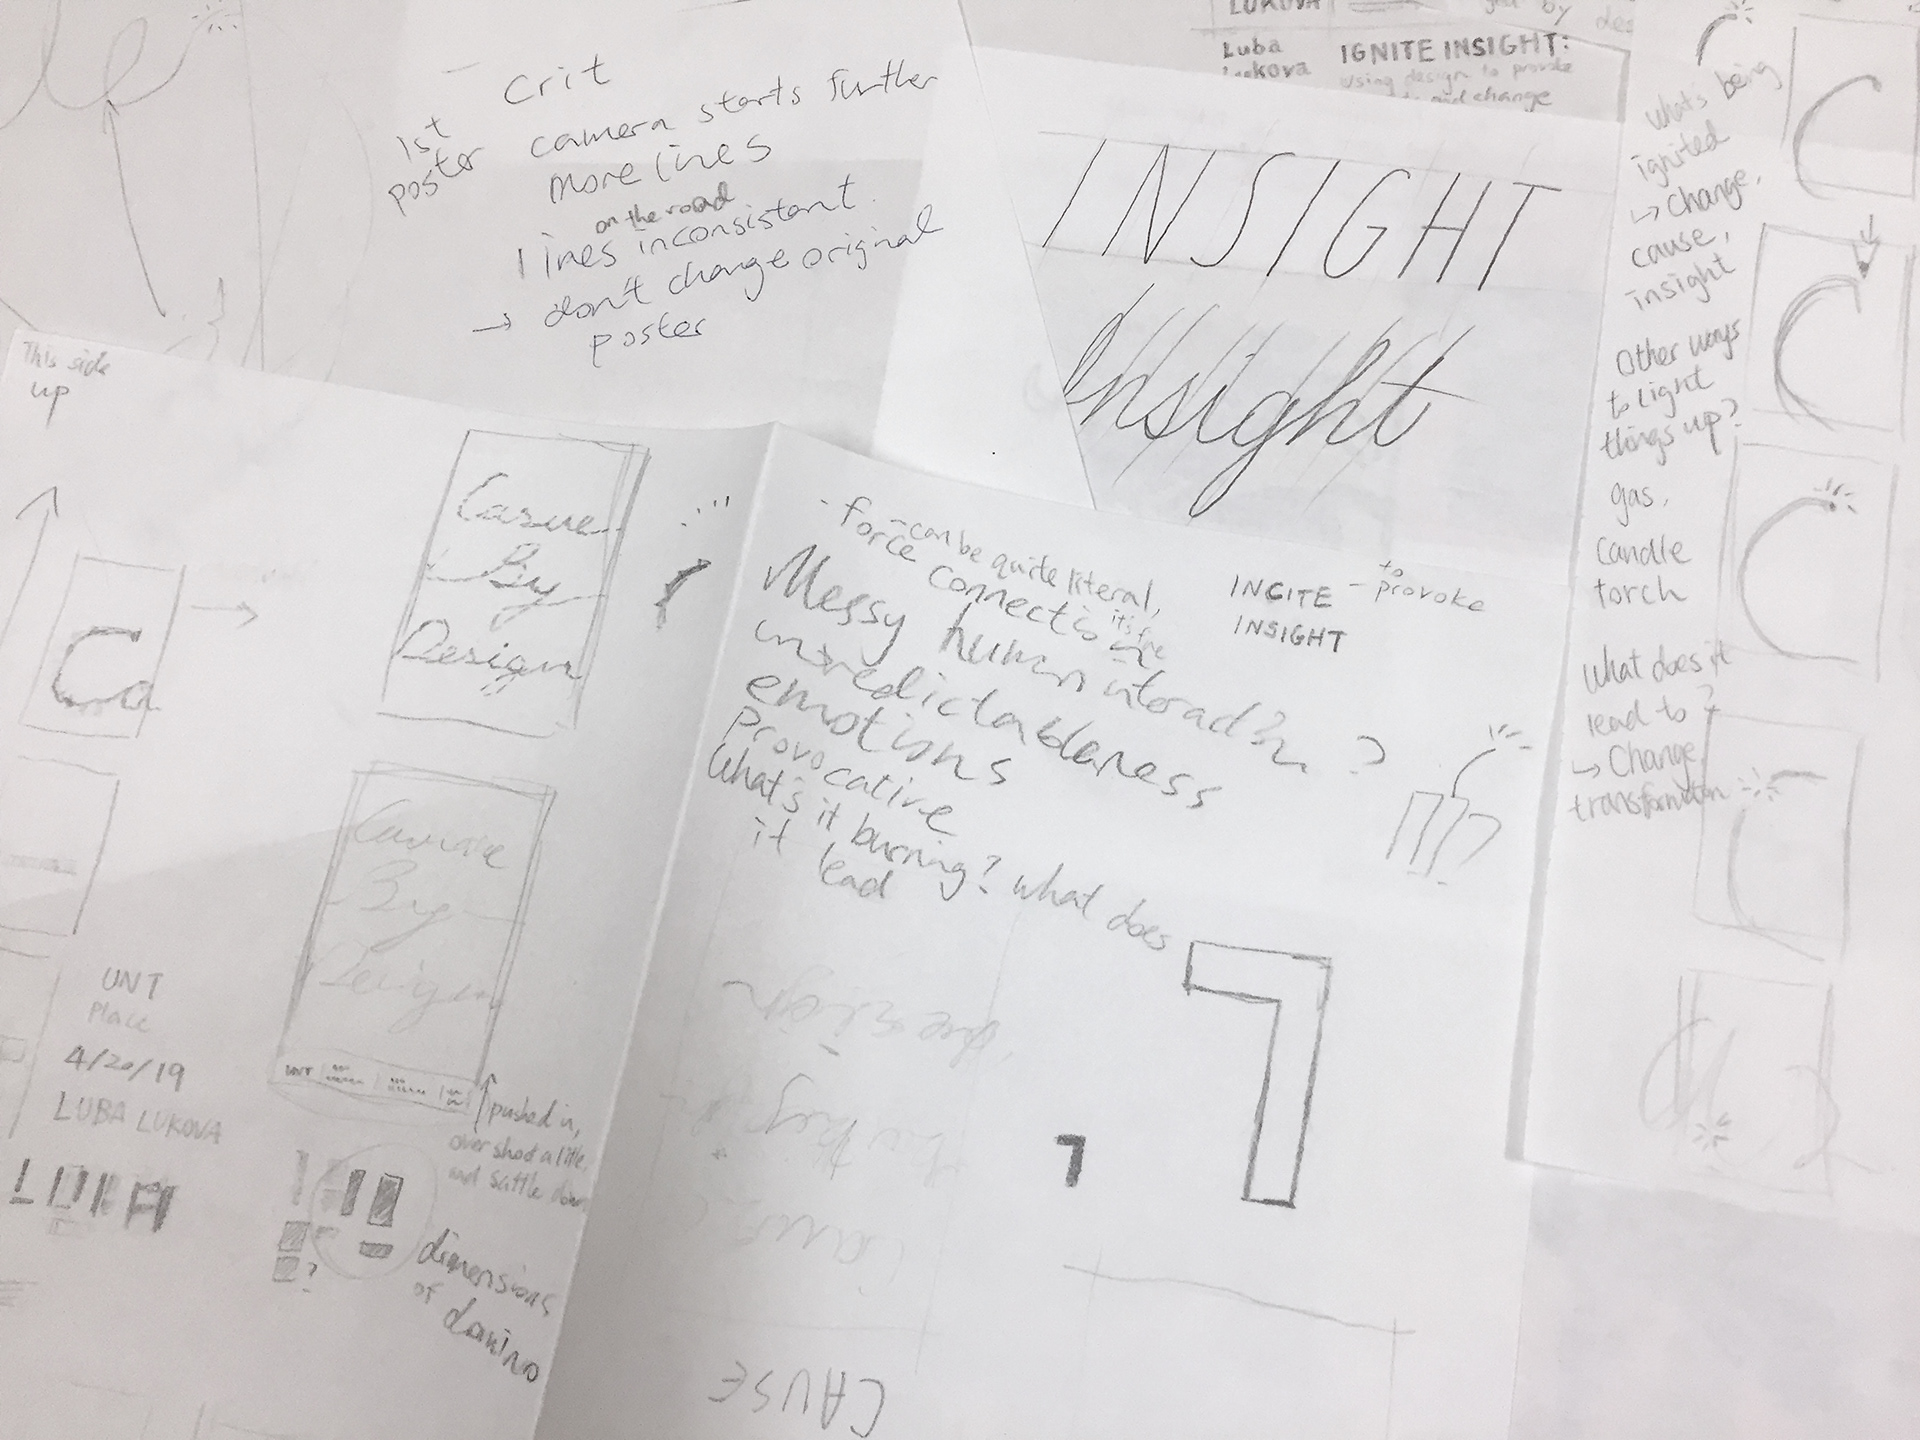 Crit
1st
poster
camera starts further
more lines
on the road
lines inconsistant.
→ don't change original
poster
LUKOVA
by des
Luba
Lukova
IGNITE INSIGHT:
using design to provoke
and change
INSIGHT
Insight
whats being
ignited
↳ change,
cause,
insight
Other ways
to light
things up?
gas,
candle
torch
What does it
lead to?
↳ Change,
transformation
This side
up
Ca
Casue
By
Design
Cause
By
Design
UNT
pushed in,
over shoot a little,
and settle down
UNT
Place
4/20/19
LUBA LUKOVA
?
dimensions
of
domino
- can be quite literal,
it's fine
- force connection
Messy human interaction?
unpredictableness
emotions
provocative
What's it burning? what does
it lead
INCITE - to provoke
INSIGHT
design
by
CAUSE